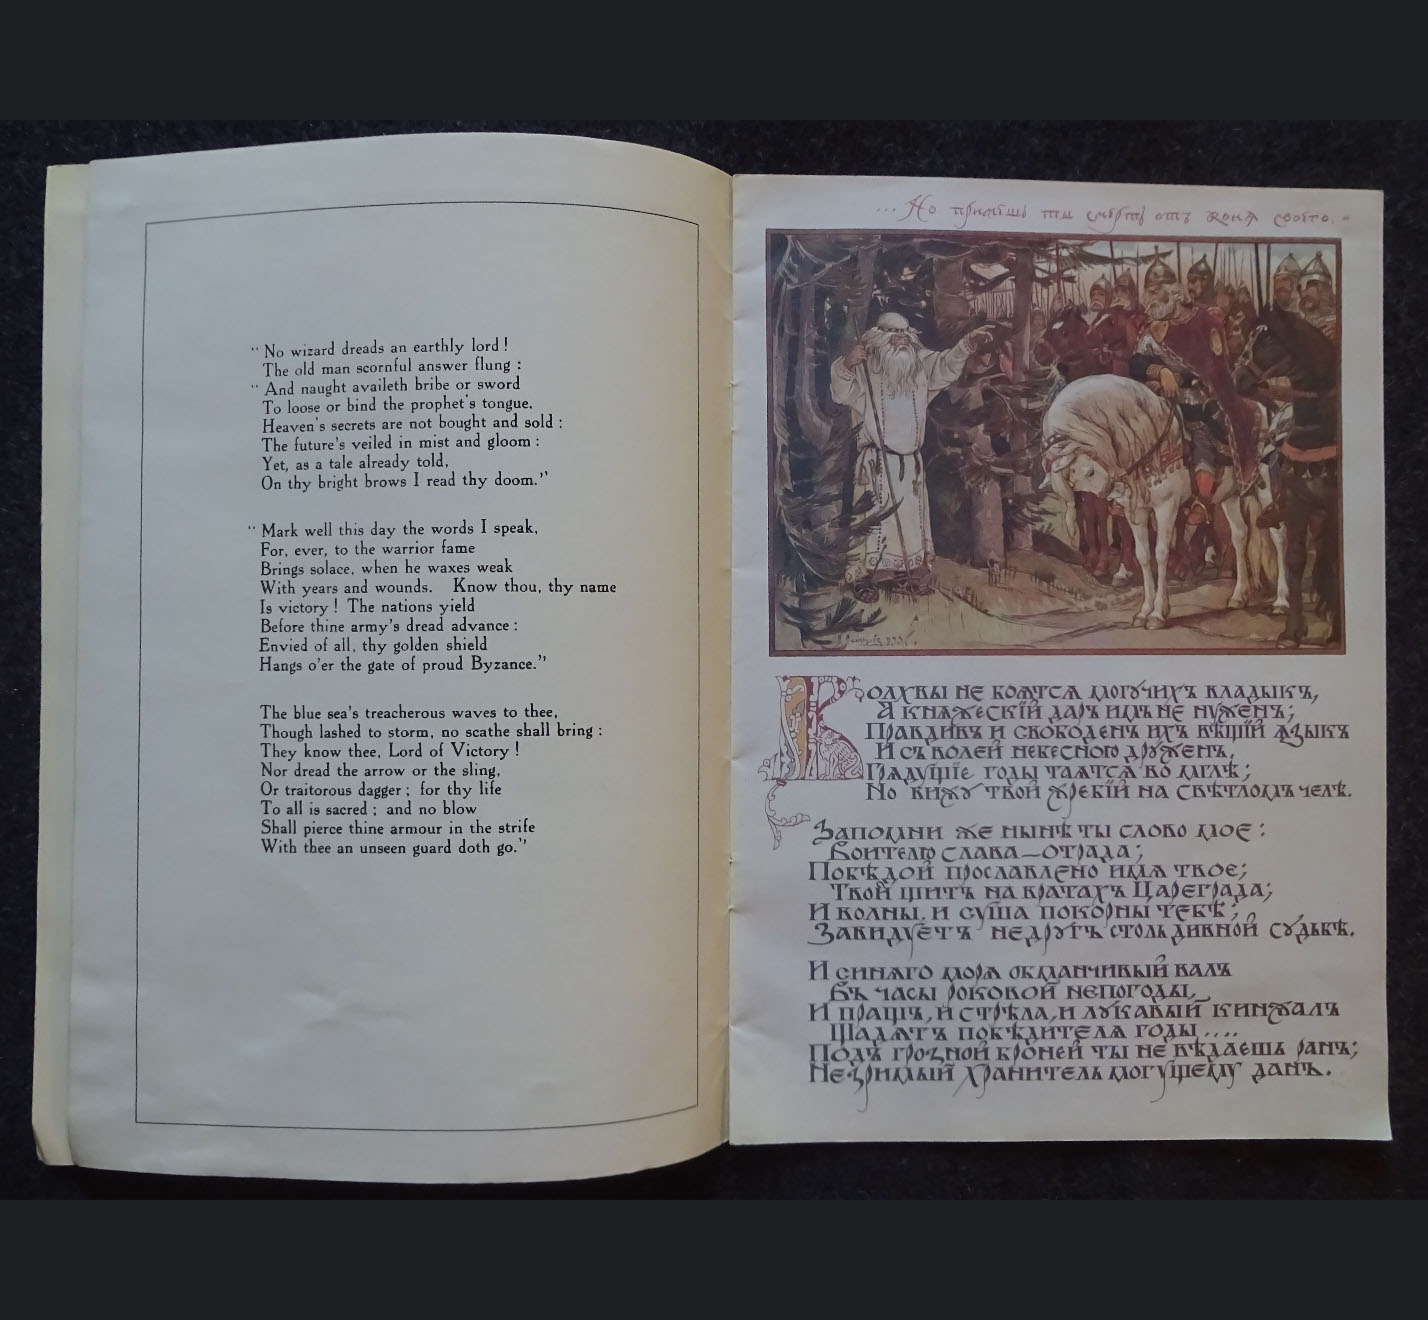 “ No wizard dreads an earthly lord !
The old man scornful answer flung :
“ And naught availeth bribe or sword
To loose or bind the prophet's tongue.
Heaven's secrets are not bought and sold :
The future's veiled in mist and gloom :
Yet, as a tale already told,
On thy bright brows I read thy doom.”
“ Mark well this day the words I speak,
For, ever, to the warrior fame
Brings solace, when he waxes weak
With years and wounds. Know thou, thy name
Is victory ! The nations yield
Before thine army's dread advance :
Envied of all, thy golden shield
Hangs o'er the gate of proud Byzance.”
The blue sea's treacherous waves to thee,
Though lashed to storm, no scathe shall bring :
They know thee, Lord of Victory !
Nor dread the arrow or the sling,
Or traitorous dagger ; for thy life
To all is sacred ; and no blow
Shall pierce thine armour in the strife
With thee an unseen guard doth go.”
... Но примешь ты смерть отъ коня своего. -
Волхвы не боятся могучихъ владыкъ,
А княжескій даръ имъ не нуженъ;
Правдивъ и свободенъ ихъ вѣщій языкъ
И съ волей небесною друженъ.
Грядущіе годы таятся во мглѣ;
Но вижу твой жребій на свѣтломъ челѣ.
Запомни же нынѣ ты слово мое :
Воителю слава — отрада;
Побѣдой прославлено имя твое;
Твой щитъ на вратахъ Цареграда;
И волны, и суша покорны тебѣ;
Завидуетъ недругъ столь дивной судьбѣ.
И синяго моря обманчивый валъ
Въ часы роковой непогоды,
И пращъ, и стрѣла, и лукавый кинжалъ
Щадятъ побѣдителя годы....
Подъ грозной броней ты не вѣдаешь ранъ;
Незримый хранитель могущему данъ.